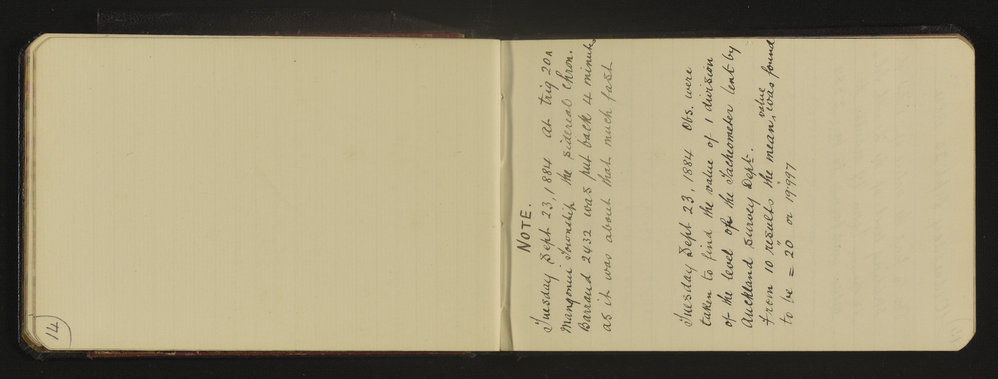 14
NOTE.
Tuesday Sept 23, 1884 at trig 20A
Mangonui Township the sidereal Chron.
Barraud 2432 was put back 4 minutes
as it was about that much fast
Tuesday Sept 23, 1884 Obs. were
taken to find the value of 1 division
of the level of the Tacheometer lent by
Auckland Survey Dept.
From 10 results the mean value was found
to be = 20" or 19.997